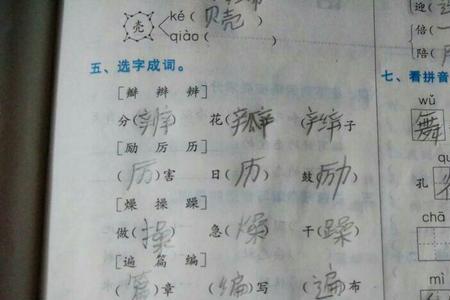 ké(贝壳)
壳
qiào(
五、选字成词。
[瓣 辫 辨]
分(辨) 花(瓣) (辫)子
[励 厉 历]
(厉)害 日(历) 鼓(励)
[燥 操 躁]
做(操) 急(燥) 干(躁)
[遍 篇 编]
(篇)章 (编)写 (遍)布
迎(
倍(
陪(
七、看拼音
wǔ
舞
孔
chā
mì